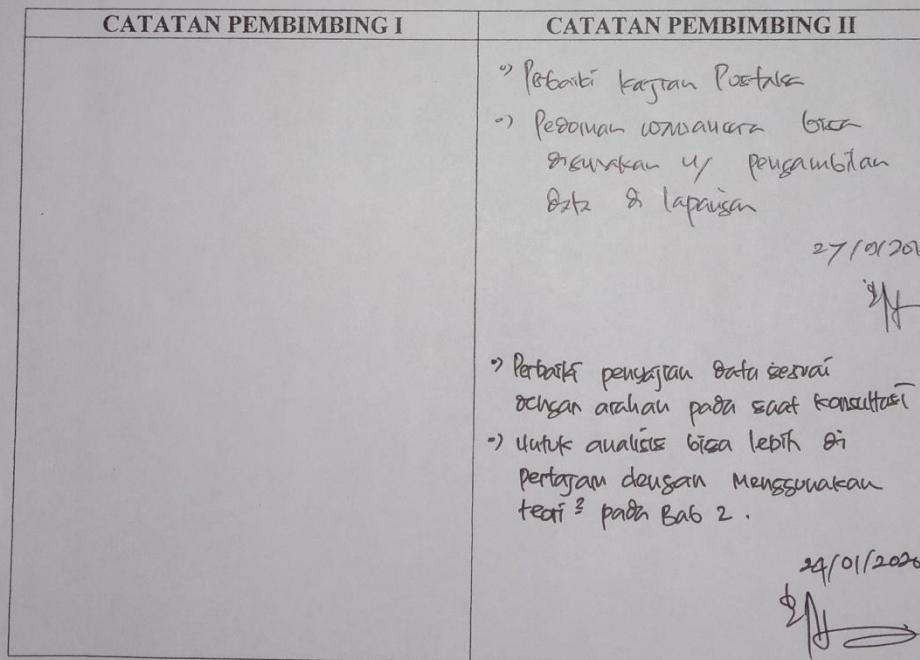 CATATAN PEMBIMBING I
CATATAN PEMBIMBING II
Perbaiki kajian Pustaka
Pedoman wawancara bisa
digunakan u/ pengambilan
data di lapangan
Perbaiki penyajian data sesuai
dengan arahan pada saat konsultasi
Untuk analisis bisa lebih di
pertajam dengan Menggunakan
teori² pada Bab 2.
24/01/2020